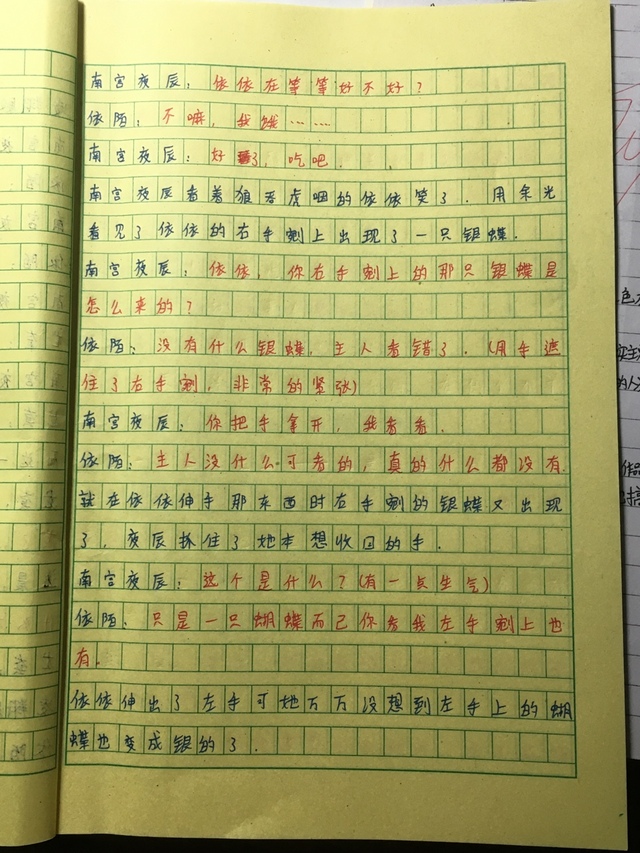 南宫夜辰：依依在等等好不好？
依陌：不嘛，我饿……
南宫夜辰：好了，吃吧．
南宫夜辰看着狼吞虎咽的依依笑了．用余光
看见了依依的右手割上出现了一只银蝶．
南宫夜辰：依依，你右手割上的那只银蝶是
怎么来的？
依陌：没有什么银蝶．主人看错了．(用手遮
住了右手割，非常的紧张)
南宫夜辰：你把手拿开，我看看．
依陌：主人没什么可看的，真的什么都没有．
就在依依伸手那东西时右手割的银蝶又出现
了．夜辰抓住了她本想收回的手．
南宫夜辰：这个是什么？(有一点生气)
依陌：只是一只蝴蝶而已你看我左手割上也
有．
依依伸出了左手可她万万没想到左手上的蝴
蝶也变成银的了．
色
的人
作品